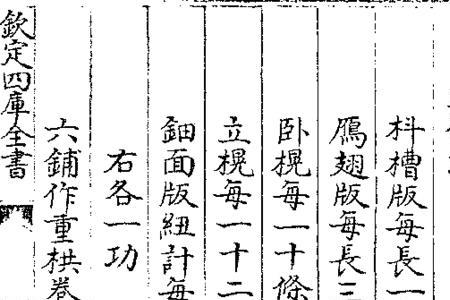 枓槽版每長一
鴈翅版每長三
卧榥每一十條
立榥每一十二
鈿面版紐計每
右各一功
六鋪作重栱卷
欽定四庫全書